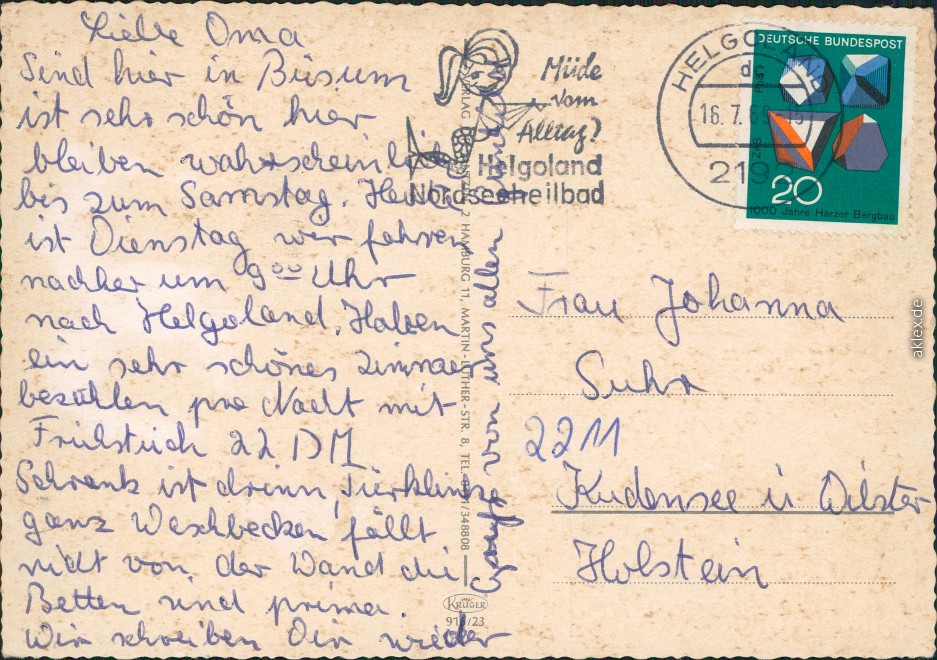 Liebe Oma
Sind hier in Büsum
ist sehr schön hier
bleiben wahrscheinlich
bis zum Samstag. Heute
ist Dienstag wir fahren
nachher um 9⁰⁰ Uhr
nach Helgoland. Haben
ein sehr schönes Zimmer
bezahlen pro Nacht mit
Frühstück 22 DM
Schrank ist drinn, Türklinke
ganz Waschbecken fällt
nicht von der Wand die
Betten sind prima.
Wir schreiben Dir wieder
Gruß von uns allen
Müde
vom
Alltag?
Helgoland
Nordseeheilbad
HELGOLAND
16.7.69-15
219
DEUTSCHE BUNDESPOST
20
1000 Jahre Harzer Bergbau
VERLAG 2 HAMBURG 11, MARTIN-LUTHER-STR. 8, TEL. /348808
KRÜGER
/23
Frau Johanna
Suhr
2211
Kudensee ü Wilster
Holstein
aklex.de